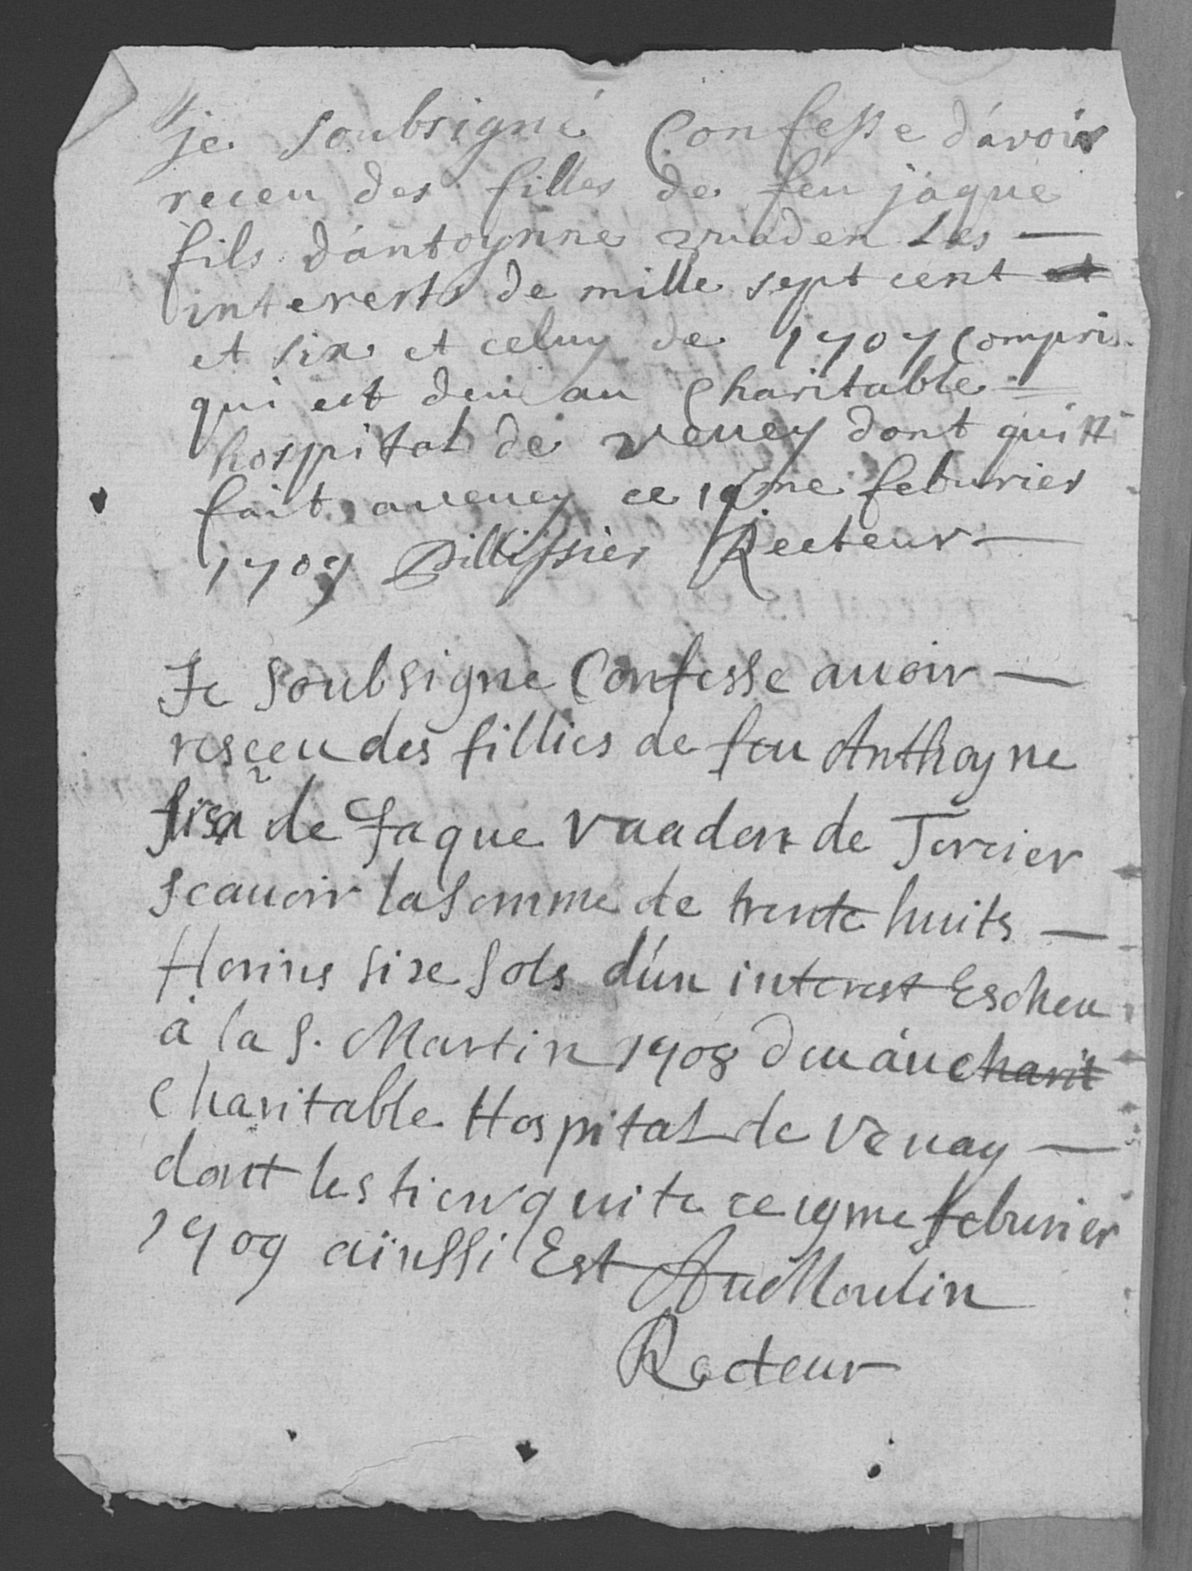 je soubsigné Confesse d'avoir
receu des filles de feu jaque
fils d'antoynne vuaden Les —
interests de mille sept cent et
et six et celuy de 1707 Compris
qui est deu au Charitable =
hospital de vevey dont quitt
fait a vevey ce me feburier
1709 Pillissier Recteur —
Je Soubsigne Confesse auoir —
resçeu des fillies de feu Anthoyne
de Jaque vaaden de Tercier
Scauoir la Somme de trente huits —
florins sixe Sols d'un interest Escheu
à la S. Martin 1708 deu au charit
Charitable Hospital de Veuay —
dont les tien quite ce 19me feburier
1709 aïnssi Est AuMoulin
Recteur